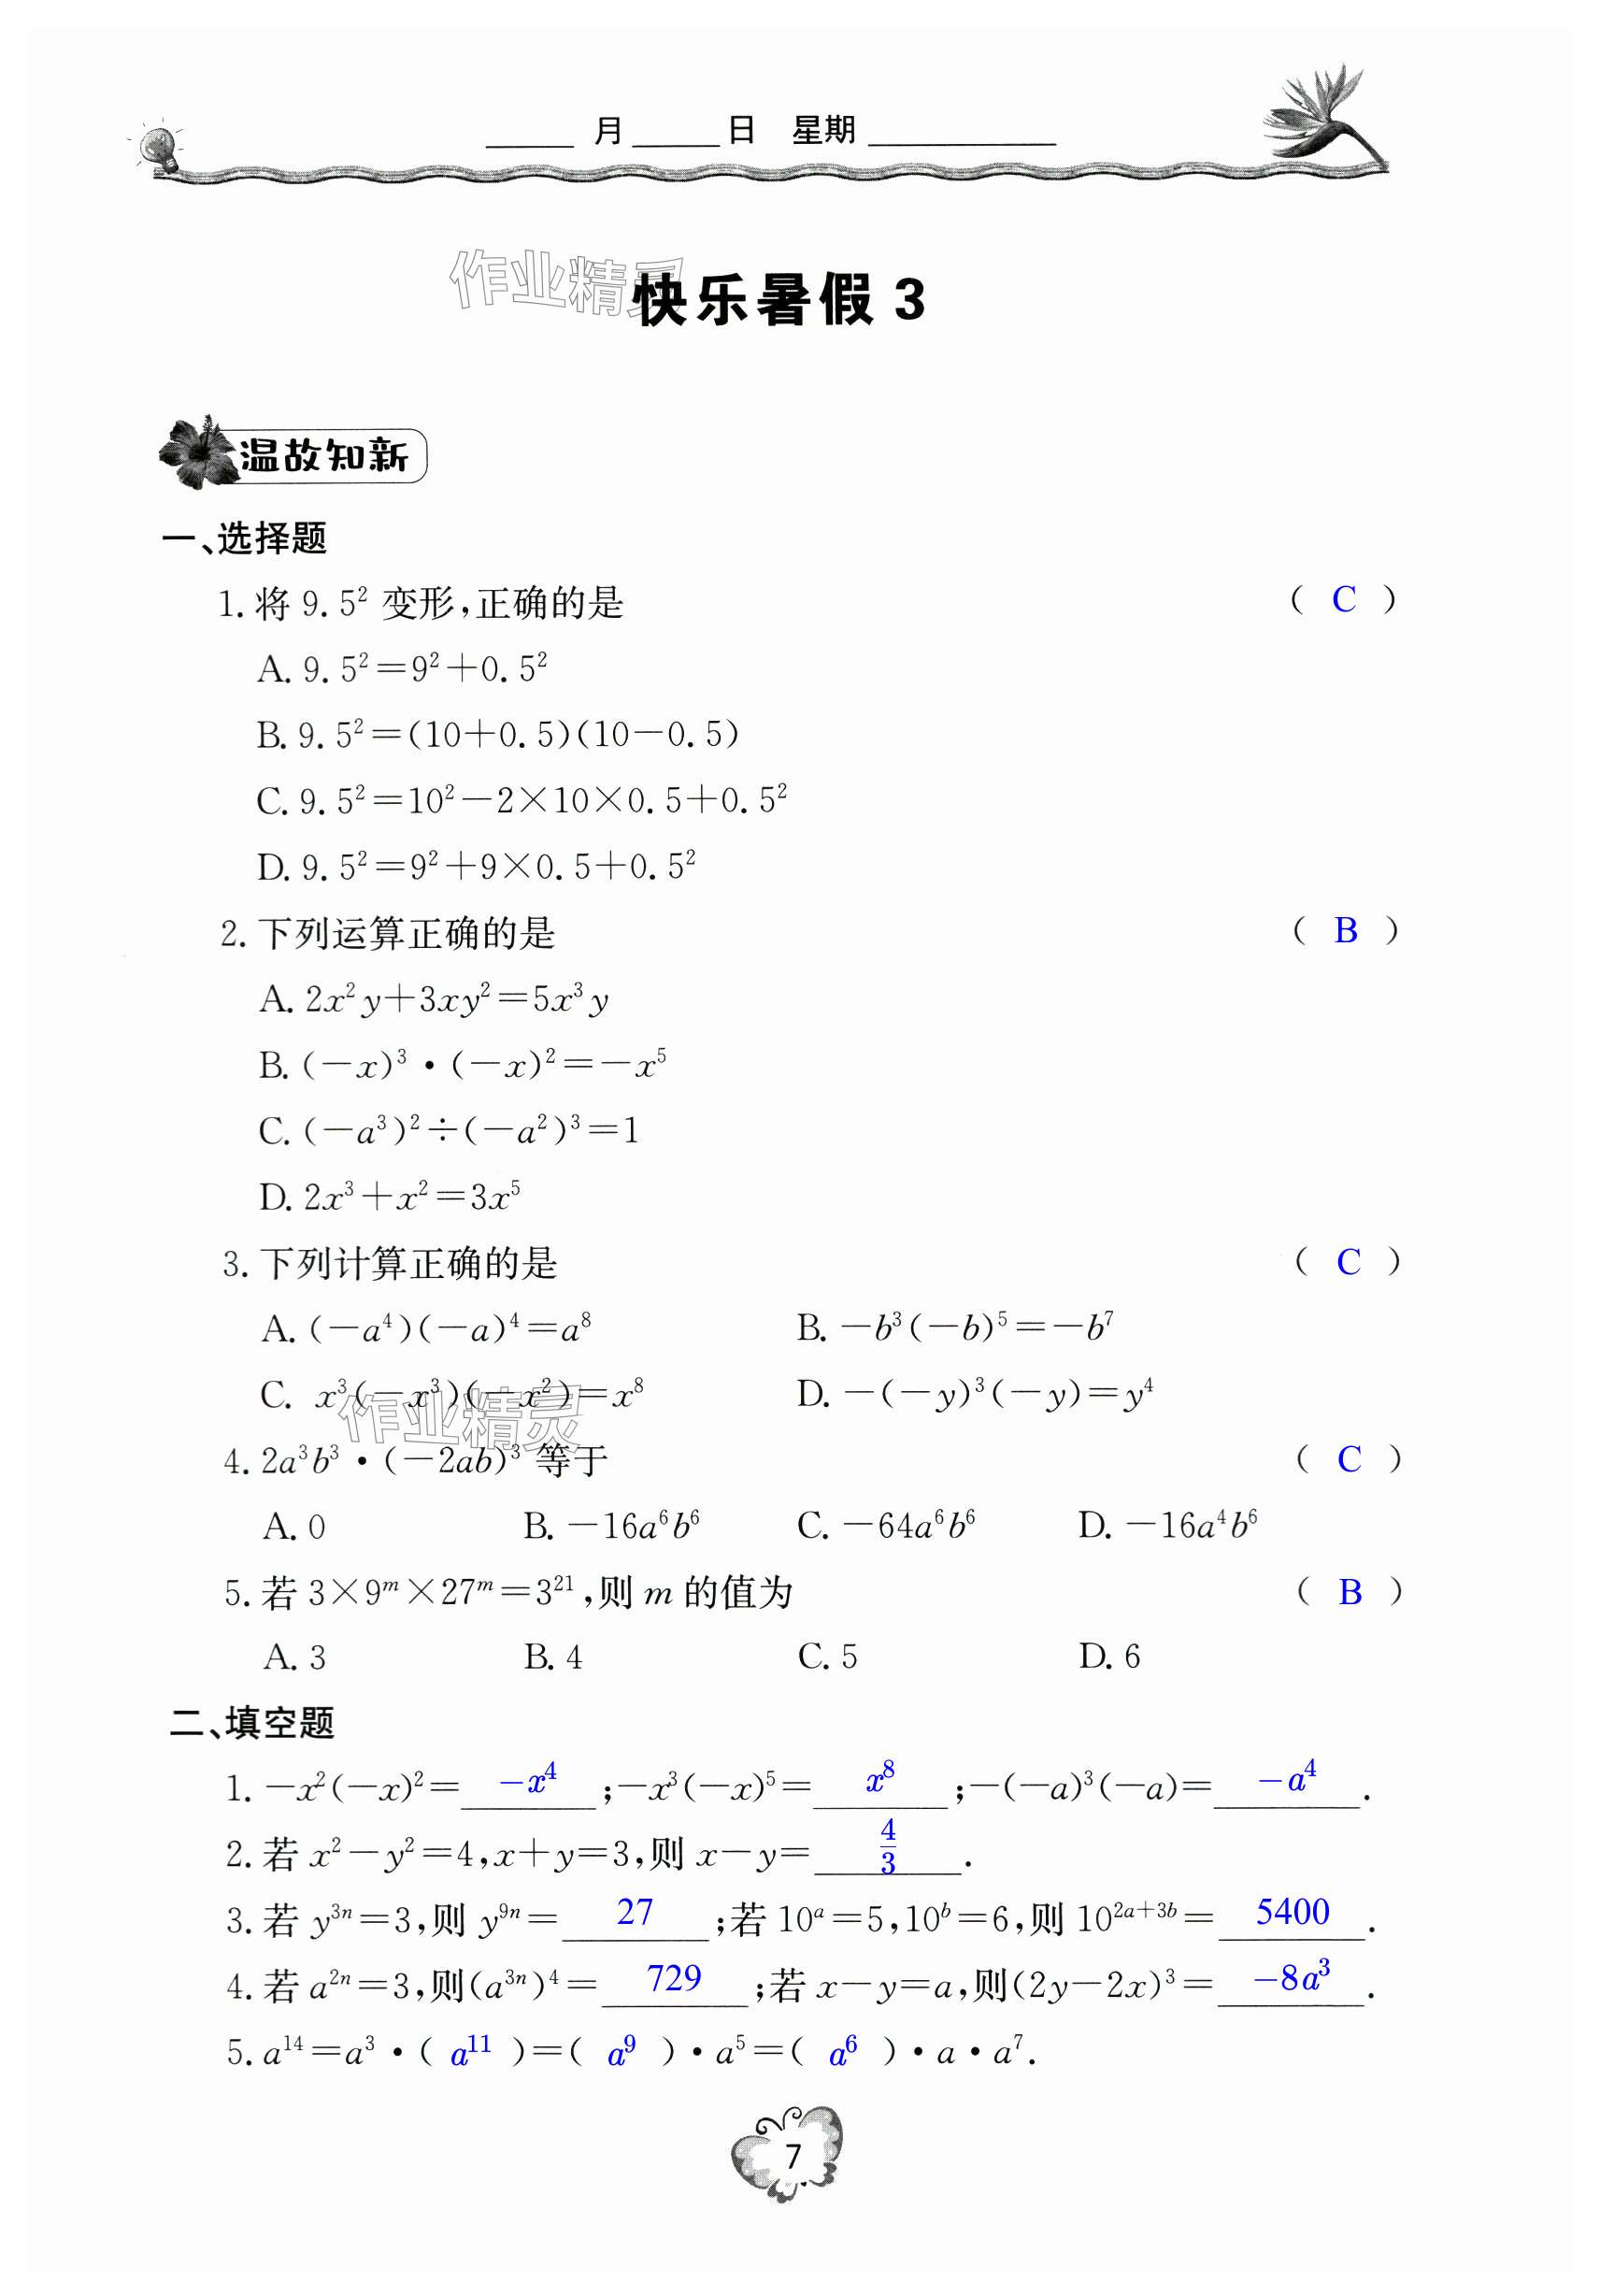 ____ 月 ____ 日 星期 ________
作业精灵
快乐暑假 3
温故知新
一、选择题
1. 将 9.5² 变形,正确的是 ( C )
A. 9.5²=9²+0.5²
B. 9.5²=(10+0.5)(10-0.5)
C. 9.5²=10²-2×10×0.5+0.5²
D. 9.5²=9²+9×0.5+0.5²
2. 下列运算正确的是 ( B )
A. 2x²y+3xy²=5x³y
B. (-x)³·(-x)²=-x⁵
C. (-a³)²÷(-a²)³=1
D. 2x³+x²=3x⁵
3. 下列计算正确的是 ( C )
A. (-a⁴)(-a)⁴=a⁸ B. -b³(-b)⁵=-b⁷
C. x³(-x³)(-x²)=x⁸ D. -(-y)³(-y)=y⁴
作业精灵
4. 2a³b³·(-2ab)³ 等于 ( C )
A. 0 B. -16a⁶b⁶ C. -64a⁶b⁶ D. -16a⁴b⁶
5. 若 3×9ᵐ×27ᵐ=3²¹,则 m 的值为 ( B )
A. 3 B. 4 C. 5 D. 6
二、填空题
1. -x²(-x)²= -x⁴ ;-x³(-x)⁵= x⁸ ;-(-a)³(-a)= -a⁴ .
2. 若 x²-y²=4,x+y=3,则 x-y= 4/3 .
3. 若 y³ⁿ=3,则 y⁹ⁿ= 27 ;若 10ᵃ=5,10ᵇ=6,则 10²ᵃ⁺³ᵇ= 5400 .
4. 若 a²ⁿ=3,则(a³ⁿ)⁴= 729 ;若 x-y=a,则(2y-2x)³= -8a³ .
5. a¹⁴=a³·( a¹¹ )=( a⁹ )·a⁵=( a⁶ )·a·a⁷.
7